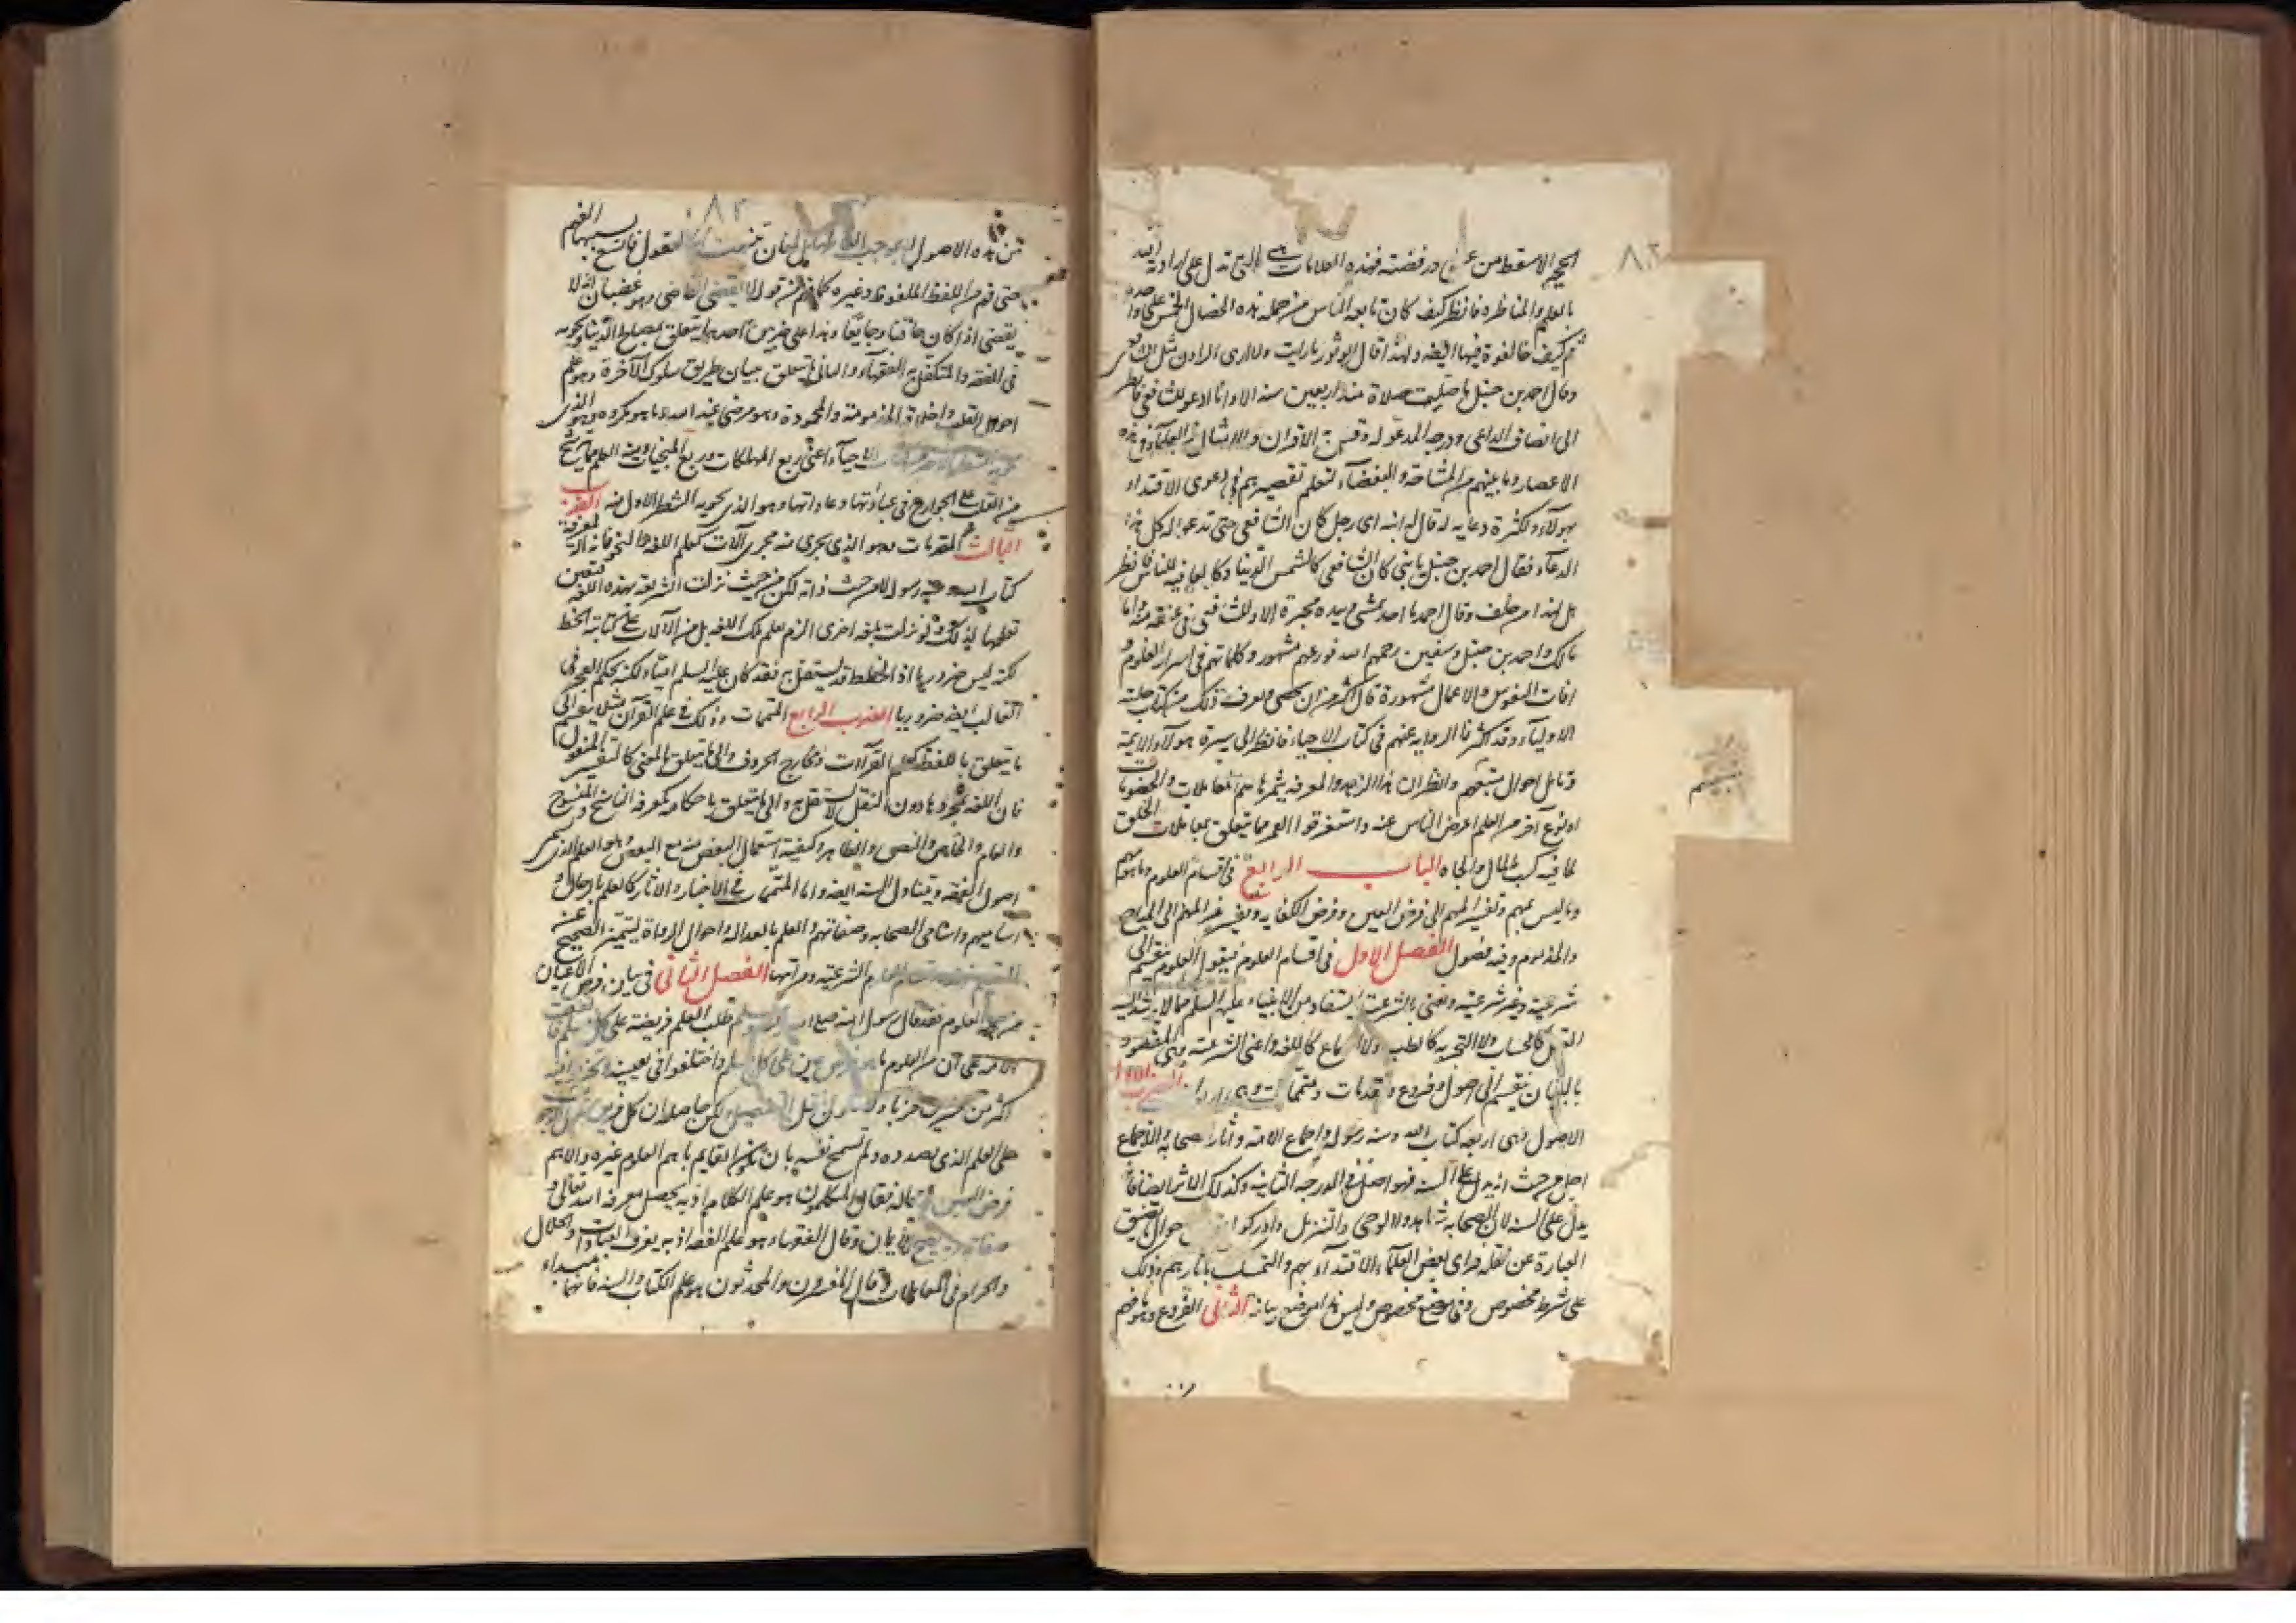 الحجة الا سقط من عيني ورفضته فهذه العلامات هي التي تدل على ارادة الله
بالعلم والمناظرة فانظر كيف كان تابعه الناس من جملة هذه الخصال الخمس على واحدة
ثم كيف خالفوه فيها ايضه ولهذا قال ابو ثور ما رايت ولا راى الراون مثل الشافعي
وقال احمد بن حنبل ما صليت صلاة منذ اربعين سنة الا وانا ادعو للشافعي فانظر
الى انصاف الداعي ودرجة المدعو له وقس به الاقران والامثال من العلماء في هذه
الاعصار وما بينهم من المشاحنة والبغضاء لتعلم تقصيرهم في دعوى الاقتداء
بهولاء ولكثرة دعايه له قال له ابنه اى رجل كان الشافعي حتى تدعو له كل هذا
الدعاء فقال احمد بن حنبل يا بني كان الشافعي كالشمس للدنيا وكالعافية للناس فانظر
هل لهذا من خلف وقال احمد ما احد يمشي بيده محبرة الا وللشافعي في عنقه منة واما
مالك واحمد بن حنبل وسفين رحمهم الله فورعهم مشهور وكلماتهم في اسرار العلوم و
افات النفوس والاعمال مشهورة قال اكثر من ان يحصى ويعرف ذلك من كتاب حلية
الاولياء وقد اكثرنا الرواية عنهم في كتاب الاحياء فانظر الى سيرة هولاء الايمة
وتامل احوال متبعيهم وانظر ان هذا الزهد والمعرفة يثمرها علم المعاملات والخصومات
او نوع آخر من العلم اعرض الناس عنه واستغرقوا العمر بما يتعلق بمعاملات الخلق
لما فيه كسب المال والجاه الباب الرابع في اقسام العلوم وما هو مهم
وما ليس بمهم وتقسيم المهم الى فرض العين وفرض الكفاية وتقسيم غير المهم الى المباح
والمذموم وفيه فصول الفصل الاول في اقسام العلوم فيقول العلوم تنقسم الى
شرعية وغير شرعية ونعني بالشرعية ما يستفاد من الانبياء عليهم السلم مما لا يرشد اليه
العقل كالحساب ولا التجربة كالطب ولا السماع كاللغة واعني الشرعية وهي المقصود
بالبيان ينقسم الى اصول وفروع ومقدمات ومتممات
الاصول وهي اربعة كتاب الله وسنة رسوله واجماع الامة وآثار الصحابة والاجماع
اصل من حيث انه يدل على السنة فهو اصل في الدرجة الثانية وكذلك الاثر ايضا فانه
يدل على السنة لان الصحابة شاهدوا الوحي والتنزيل وادركوا احوال تضيق
العبارة عن نقله فراى بعض العلماء الاقتداء بهم والتمسك باثارهم وذلك
على شرط مخصوص وفي موضع مخصوص وليس هذا موضع بيانه الثاني الفروع وهو ما فهم
من هذه الاصول لا بموجب الفاظها بل بمعان تنبهت لها العقول فاتسع بسببها الفهم
حتى فهم من اللفظ الملفوظ وغيره كما فهم من قوله لا يقضي القاضي وهو غضبان انه لا
يقضى اذا كان حاقنا وجايعا وهذا على ضربين احدهما يتعلق بمصالح الدنيا ويحويه
في الفقه والمتكفل به الفقهاء والثاني ما يتعلق ببيان طريق سلوك الآخرة وهو علم
احوال القلب واخلاقه المذمومة والمحمودة وهو مرضي عند الله وما هو مكروه وهو الذى
الاحياء اعني ربع المهلكات وربع المنجيات ومنه العلم بما يترشح
من القلب على الجوارح في عباداتها وعاداتها وهو الذى يحويه الشطر الاول منه الضرب
الثالث المقدمات وهو الذى يجرى منه مجرى آلات كعلم اللغة والنحو فانه آلة لمعرفة
كتاب الله وسنة رسوله لا من حيث ذاته لكن من حيث نزلت الشريعة بهذه اللغة فتعين
تعلمها لذلك ولو نزلت بلغة اخرى الزم تعلم تلك اللغة بل من الآلات علم كتابة الخط
لكنه ليس ضروريا اذ الخطاط قد يستقل به فقد كان عليه السلم اميا ولكنه بحكم العجز في
الغالب ايضه ضروريا الضرب الرابع المتممات وذلك في علم القرآن مثل ينقسم الى
ما يتعلق باللفظ كعلم القرآآت ومخارج الحروف والى ما يتعلق بالمعنى كالتفسير المنقول
فان اللغة بمجردها دون النقل لا تستقل به والى ما يتعلق باحكامه كمعرفة الناسخ والمنسوخ
والعام والخاص والنص والظاهر وكيفية استعمال البعض منه مع البعض وهو العلم الذى يسمى
اصول الفقه ويتناول السنة ايضه واما المتممات في الاخبار والاثار كالعلم بالرجال و
اساميهم واسامي الصحابة وصفاتهم والعلم بالعدالة واحوال الرواة ليتميز الصحيح عن
الشرعية ومراتبها الفصل الثاني في بيان فرض الاعيان
من جملة العلوم فقد قال رسول الله صلى الله عليه وسلم طلب العلم فريضة على كل مسلم
الامة على ان من العلوم ما هو فرض عين على كل مسلم واختلفوا في تعيينه
اكثر من عشرين حزبا
على العلم الذى بصدده ولم تسمح نفسه بان يكون القايم باهم العلوم غيره والاهم
فرض العين لا محالة فقال المتكلمون هو علم الكلام اذ به يحصل معرفة الله تعالى و
صفاته وقال الفقهاء هو علم الفقه اذ به يعرف العبادات والحلال
والحرام في المعاملات وقال المفسرون والمحدثون هو علم الكتاب والسنة فانهما مبداء